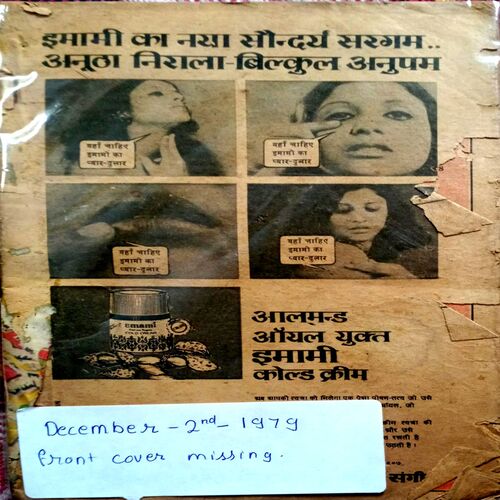 इमामी का नया सौन्दर्य सरगम..
अनूठा निराला-बिल्कुल अनुपम
यहाँ चाहिए
इमामी का
प्यार-दुलार
यहाँ चाहिए
इमामी का
प्यार-दुलार
यहाँ चाहिए
इमामी का
प्यार-दुलार
यहाँ चाहिए
इमामी का
प्यार-दुलार
emami
COLD CREAM
आलमन्ड
ऑयल युक्त
इमामी
कोल्ड क्रीम
अब आपकी त्वचा को मिलेगा एक ऐसा पोषण-तत्व जो उसे
जो
त्वचा की
और उसे
रखती है
उठती है।
संगी
December - 2nd - 1979
front cover missing.